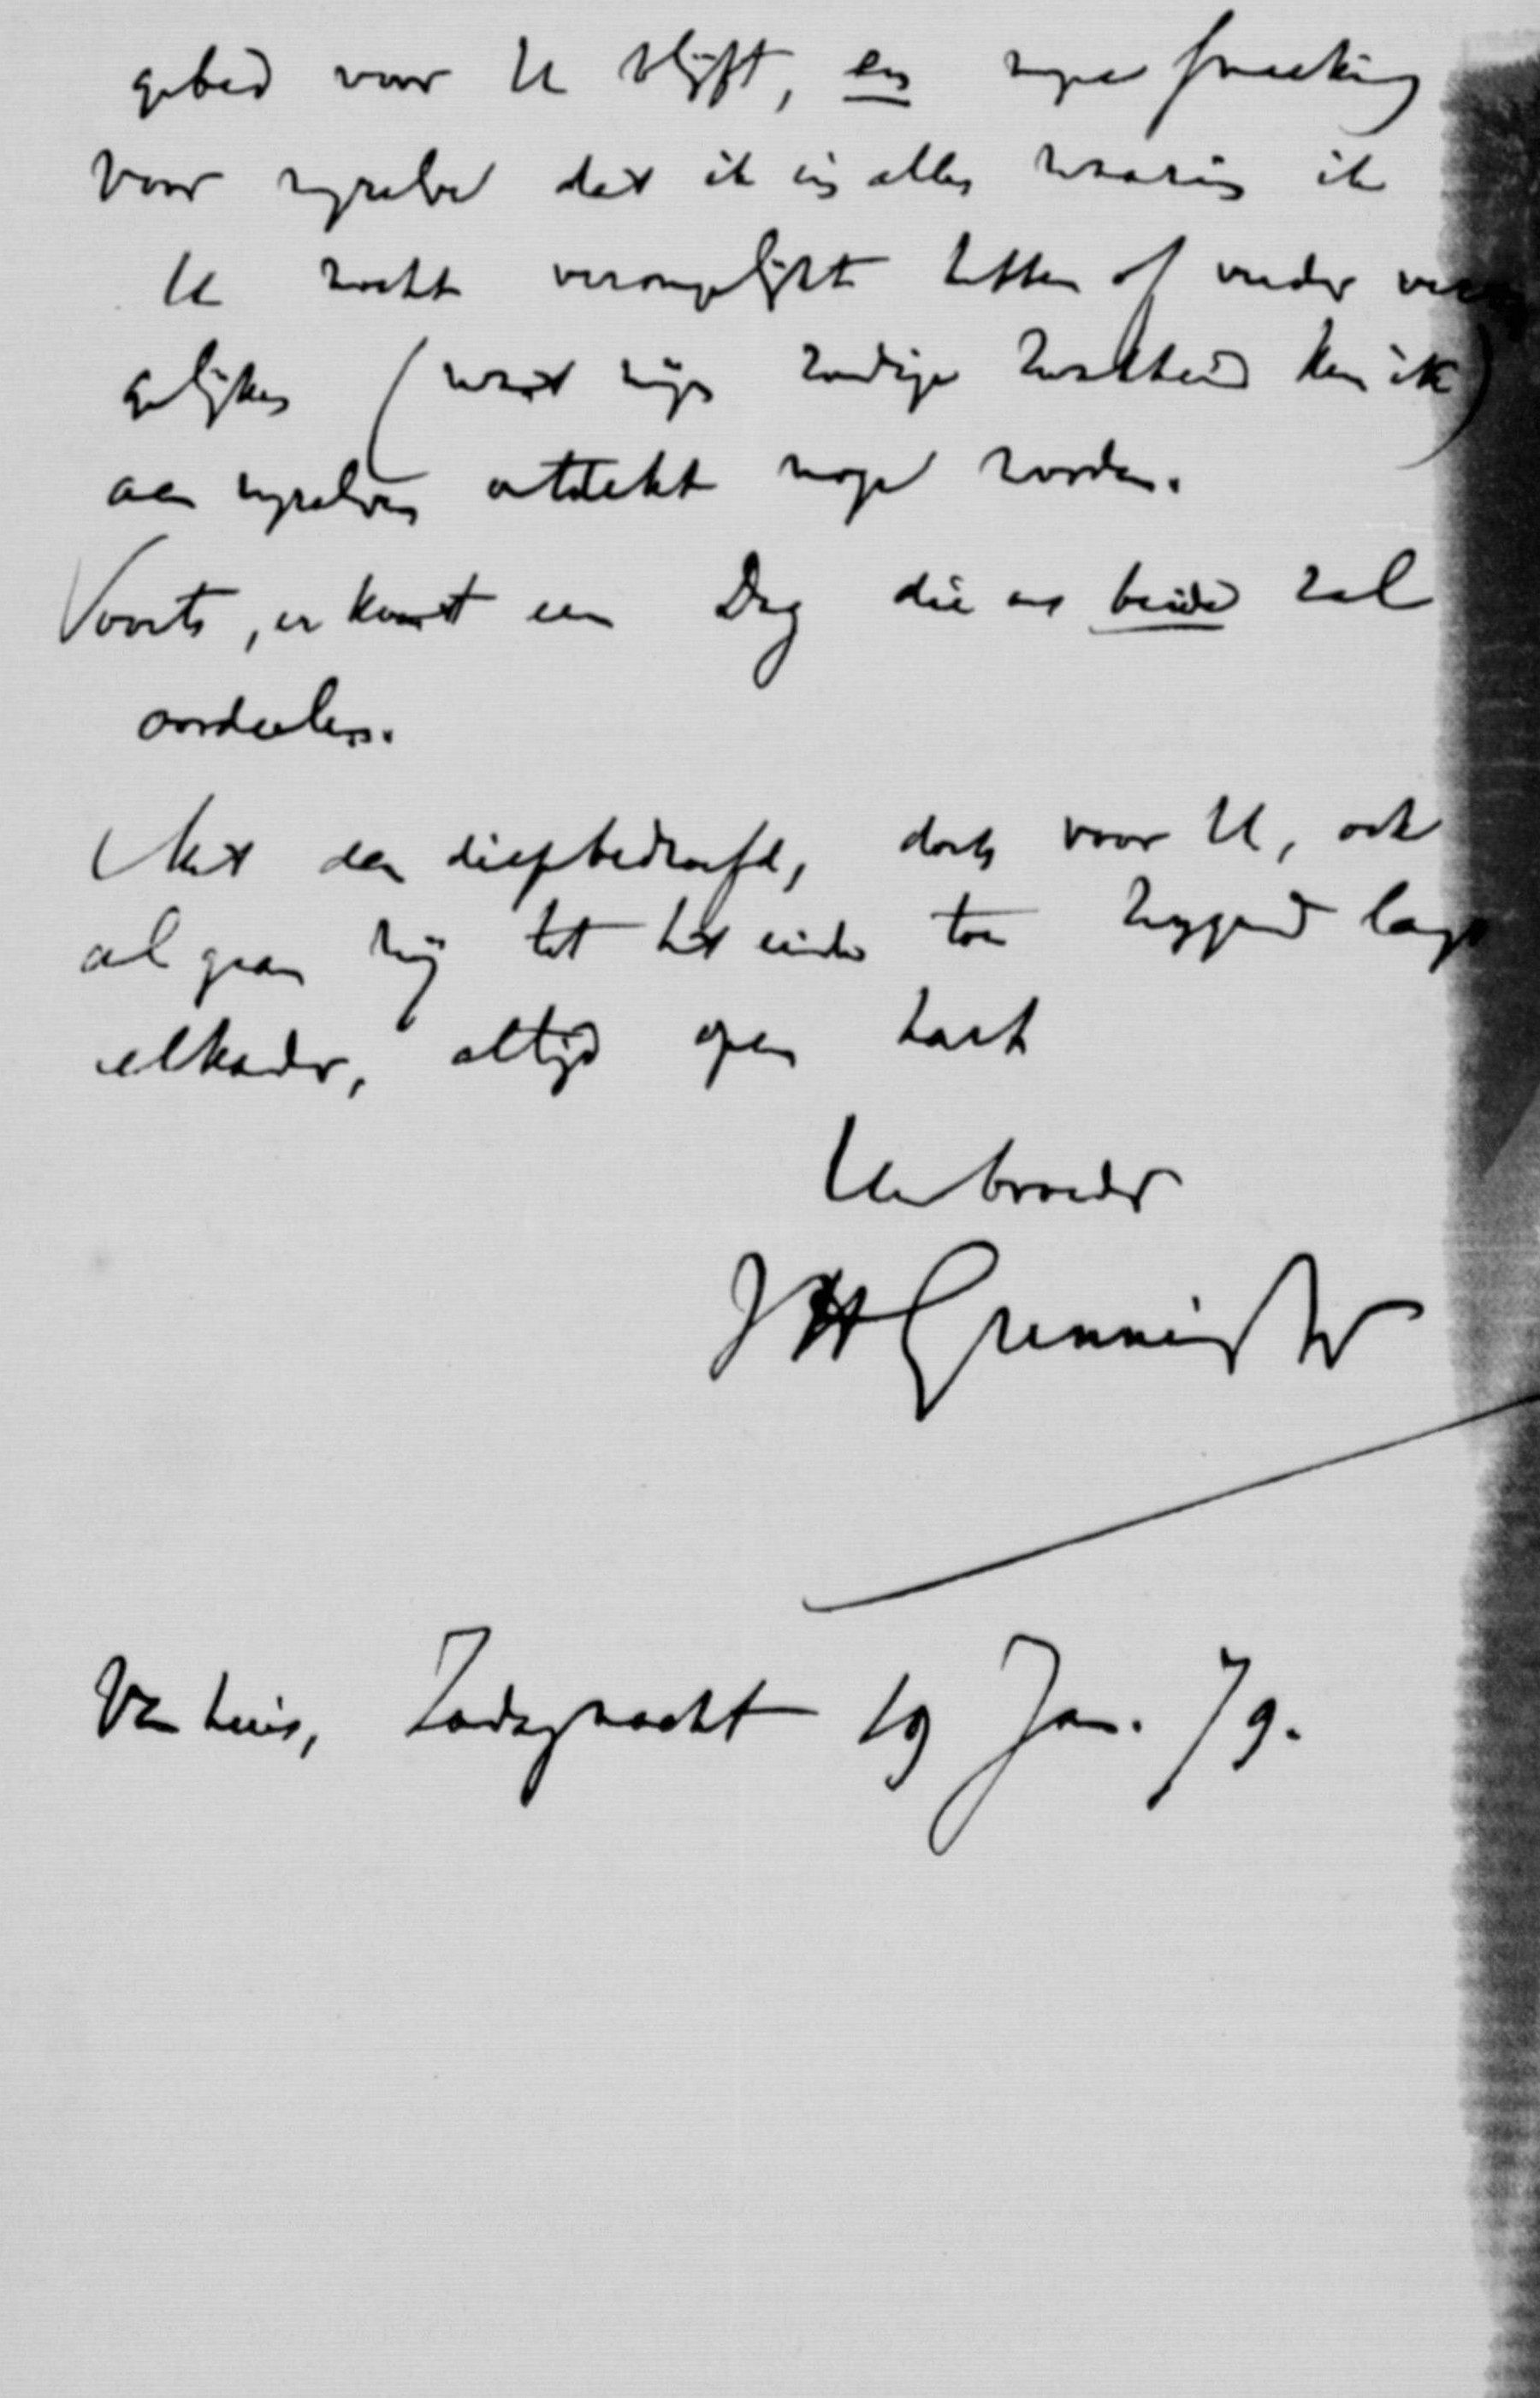 gebed voor U blijft, en myne smeeking
voor myzelve dat ik in alles waarin ik
U mocht verongelijkt hebben of verder veron
gelijken (want mijn zondige zwakheid ken ik)
aan myzelven ontdekt moge worden.
Voorts, er komt een Dag die ons beide zal
oordeelen.
Met een diepbedroefd, doch voor U, ook
al gaan wij tot het einde toe zwygend langs
elkander, altijd open hart
Uw broeder
JH Gunning Jr
V. huis, Zondagnacht 19 Jan. 79.